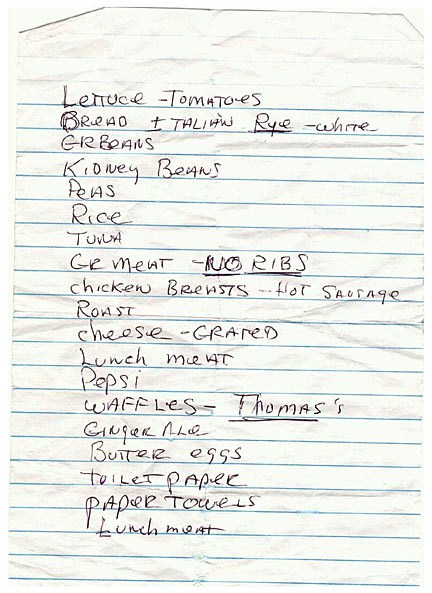 Lettuce - Tomatoes
Bread Italian Rye - white
GR Beans
Kidney Beans
Peas
Rice
Tuna
GR meat - NO RIBS
chicken Breasts - Hot Sausage
Roast
cheese - GRATED
Lunch meat
Pepsi
WAFFLES - Thomas's
Ginger Ale
Butter eggs
toilet paper
paper towels
Lunch meat